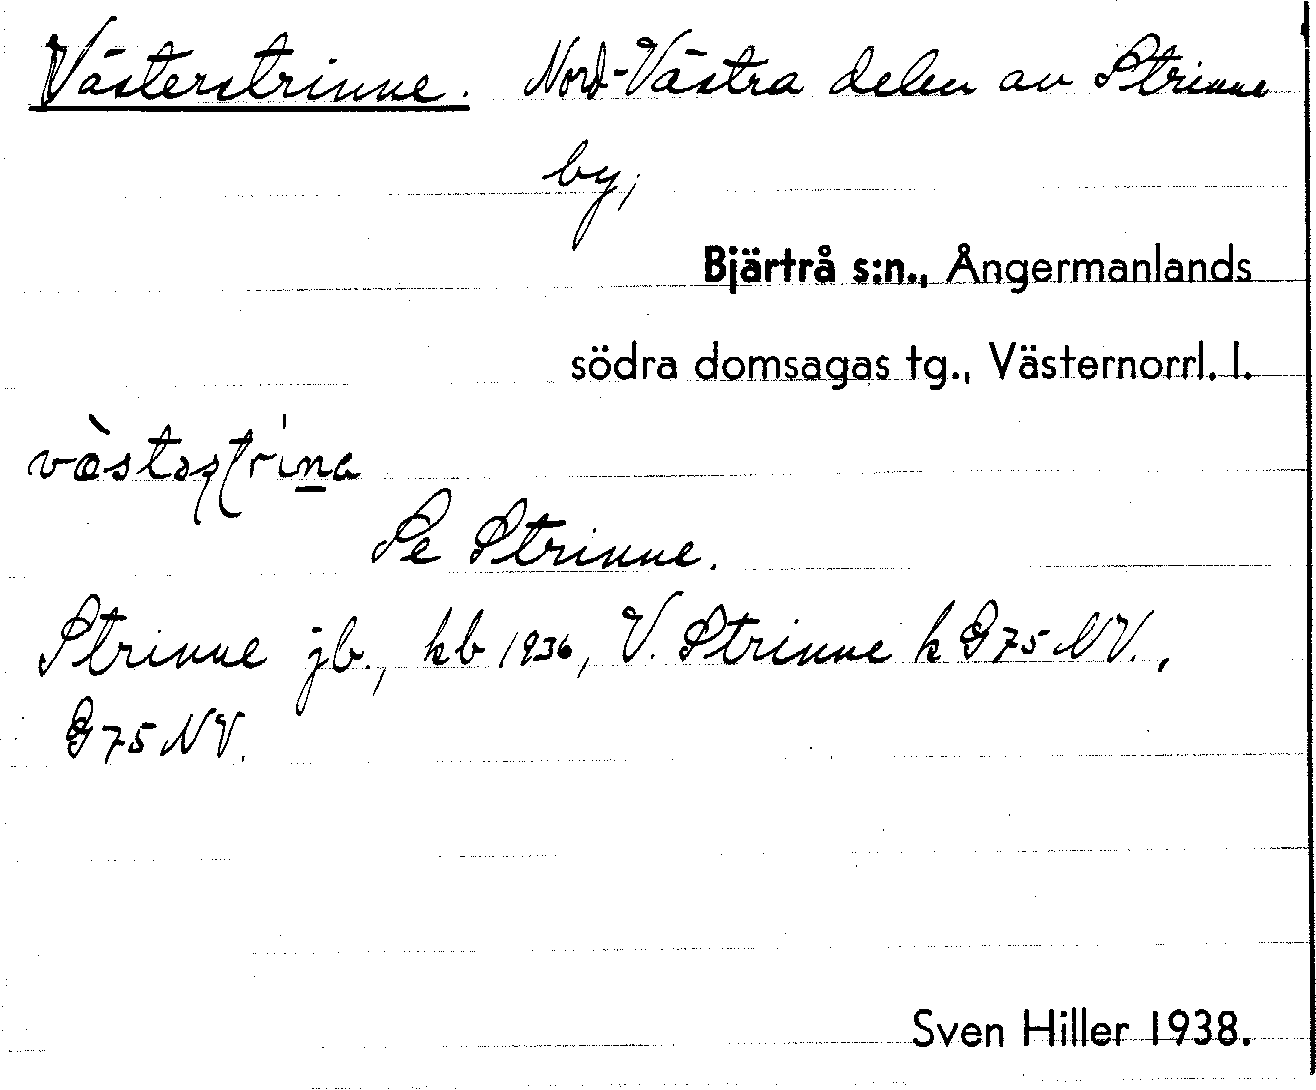 Västerstrinne. Nord-Västra delen av Strinne
by,
Bjärtrå s:n., Ångermanlands
södra domsagas tg., Västernorrl. l.
Se Strinne.
Strinne jb., kb 1936, V. Strinne k G75 NV.,
G75 NV.
Sven Hiller 1938.